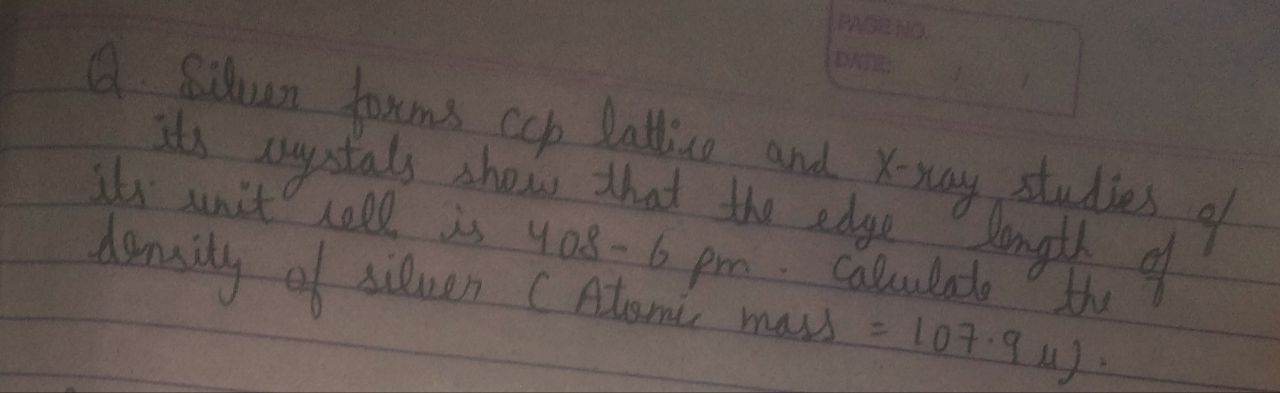 PAGE NO.
DATE: / /
Q. Silver forms ccp lattice and X-ray studies of
its crystals show that the edge length of
its unit cell is 408-6 pm. Calculate the
density of silver (Atomic mass = 107.9 u).